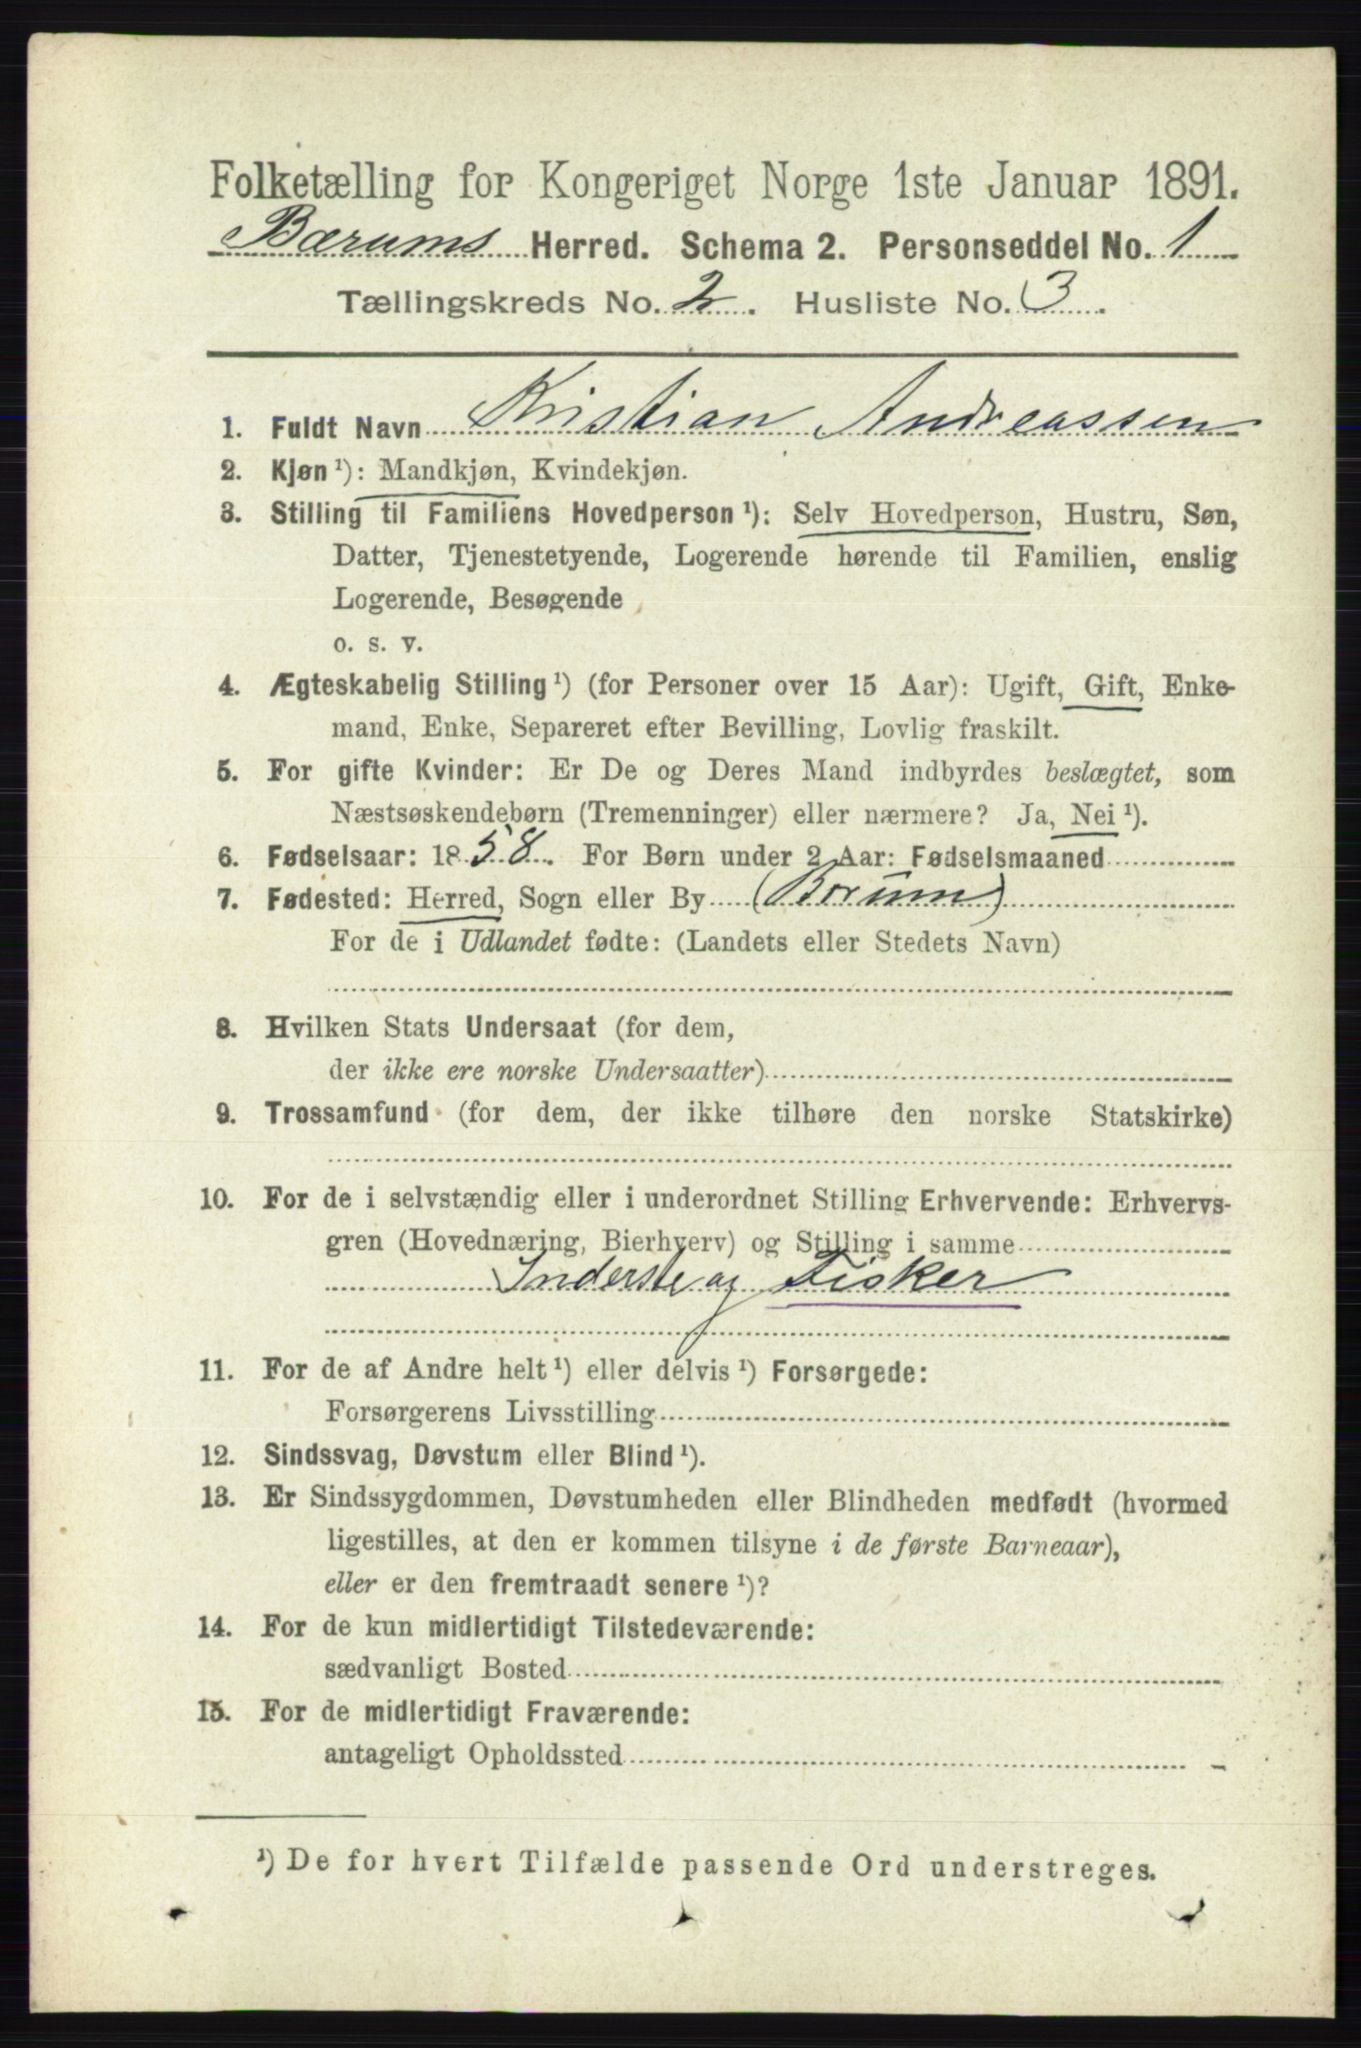 Folketælling for Kongeriget Norge 1ste Januar 1891.
Bærums Herred. Schema 2. Personseddel No. 1
Tællingskreds No. 2. Husliste No. 3.
1. Fuldt Navn Kristian Andreassen
2. Kjøn ¹): Mandkjøn, Kvindekjøn.
3. Stilling til Familiens Hovedperson ¹): Selv Hovedperson, Hustru, Søn,
Datter, Tjenestetyende, Logerende hørende til Familien, enslig
Logerende, Besøgende
o. s. v.
4. Ægteskabelig Stilling ¹) (for Personer over 15 Aar): Ugift, Gift, Enke-
mand, Enke, Separeret efter Bevilling, Lovlig fraskilt.
5. For gifte Kvinder: Er De og Deres Mand indbyrdes beslægtet, som
Næstsøskendebørn (Tremenninger) eller nærmere? Ja, Nei ¹).
6. Fødselsaar: 1858. For Børn under 2 Aar: Fødselsmaaned
7. Fødested: Herred, Sogn eller By (Borum)
For de i Udlandet fødte: (Landets eller Stedets Navn)
8. Hvilken Stats Undersaat (for dem,
der ikke ere norske Undersaatter)
9. Trossamfund (for dem, der ikke tilhøre den norske Statskirke)
10. For de i selvstændig eller i underordnet Stilling Erhvervende: Erhvervs-
gren (Hovednæring, Bierhverv) og Stilling i samme
Inderste og Fisker
11. For de af Andre helt ¹) eller delvis ¹) Forsørgede:
Forsørgerens Livsstilling
12. Sindssvag, Døvstum eller Blind ¹).
13. Er Sindssygdommen, Døvstumheden eller Blindheden medfødt (hvormed
ligestilles, at den er kommen tilsyne i de første Barneaar),
eller er den fremtraadt senere ¹)?
14. For de kun midlertidigt Tilstedeværende:
sædvanligt Bosted
15. For de midlertidigt Fraværende:
antageligt Opholdssted
¹) De for hvert Tilfælde passende Ord understreges.